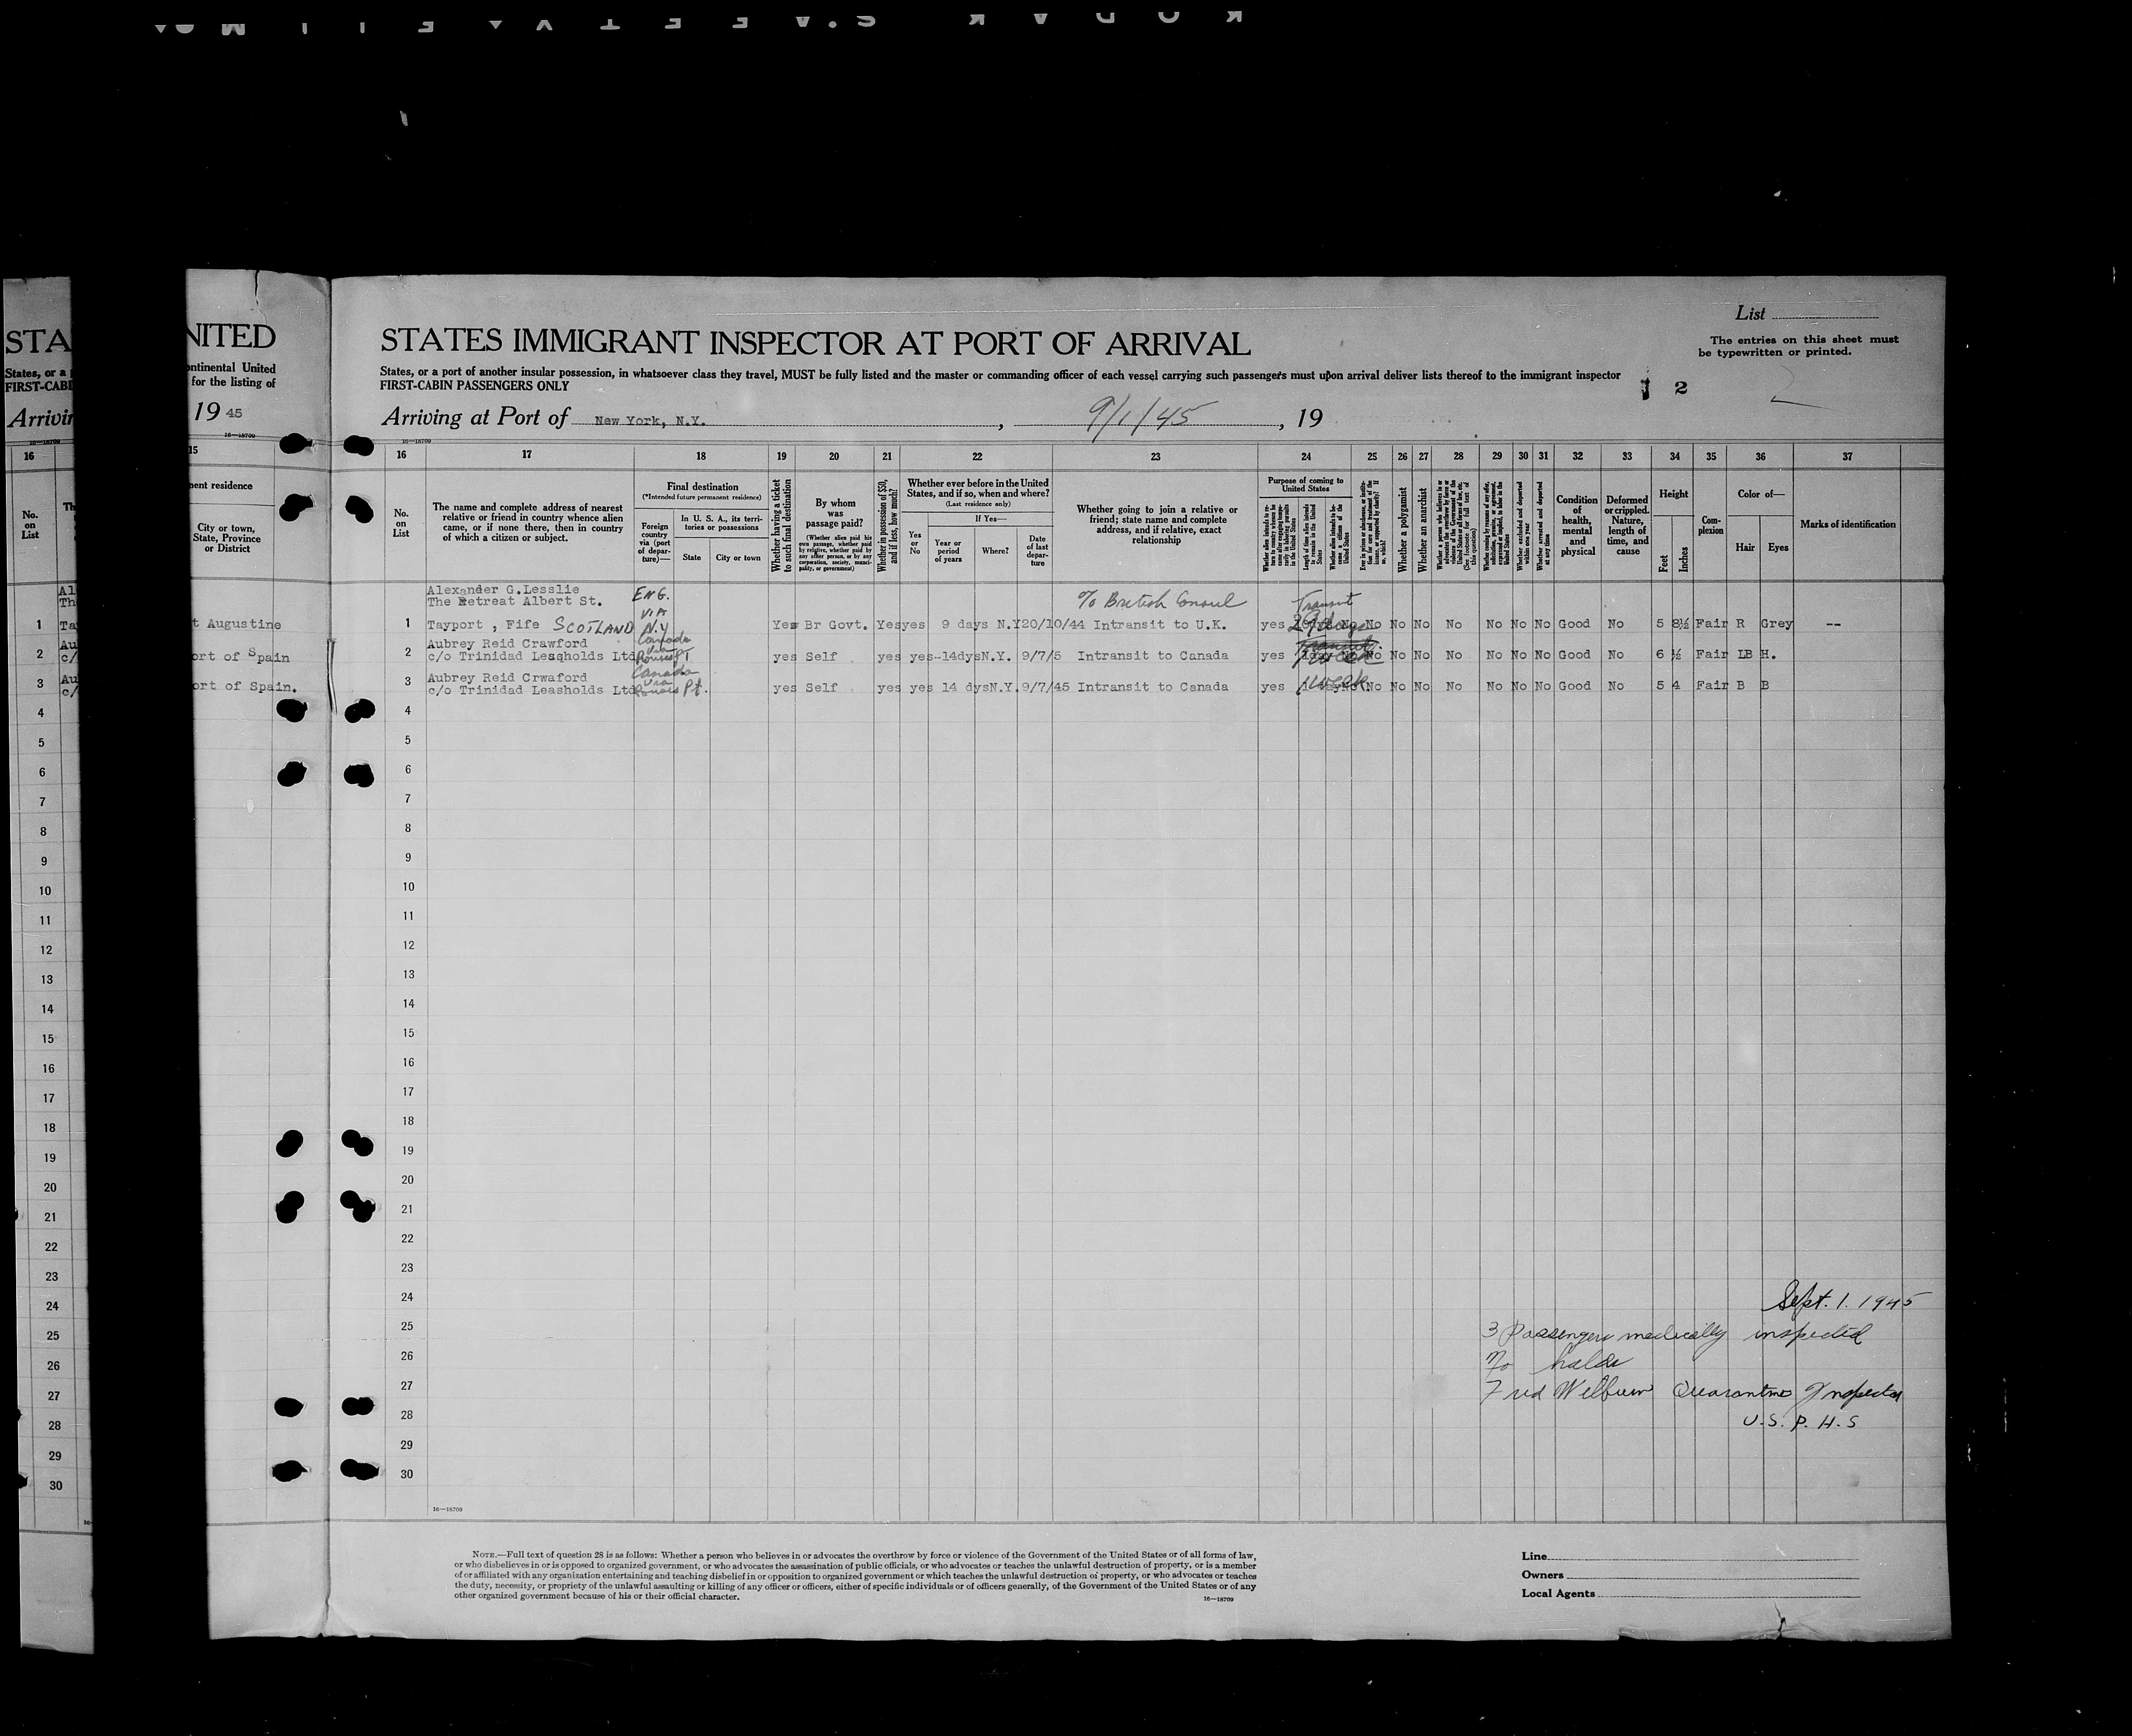 KODAK SAFETY FILM
STA
States, or a p
FIRST-CABI
Arrivin
16
No.
on
List
Al
Th
1 Ta
2 Au
c/
3 Au
c/
4
5
6
7
8
9
10
11
12
13
14
15
16
17
18
19
20
21
22
23
24
25
26
27
28
29
30
NITED
ontinental United
for the listing of
19 45
16—18709
15
nent residence
City or town,
State, Province
or District
t Augustine
ort of Spain
ort of Spain.
List
The entries on this sheet must
be typewritten or printed.
STATES IMMIGRANT INSPECTOR AT PORT OF ARRIVAL
States, or a port of another insular possession, in whatsoever class they travel, MUST be fully listed and the master or commanding officer of each vessel carrying such passengers must upon arrival deliver lists thereof to the immigrant inspector
FIRST-CABIN PASSENGERS ONLY
2 2
Arriving at Port of New York, N.Y. , 9/1/45 , 19
16—18709
16 17 18 19 20 21 22 23 24 25 26 27 28 29 30 31 32 33 34 35 36 37
No.
on
List
The name and complete address of nearest
relative or friend in country whence alien
came, or if none there, then in country
of which a citizen or subject.
Final destination
(*Intended future permanent residence)
Foreign
country
via (port
of depar-
ture)—
In U. S. A., its terri-
tories or possessions
State City or town
Whether having a ticket
to such final destination
By whom
was
passage paid?
(Whether alien paid his
own passage, whether paid
by relative, whether paid by
any other person, or by any
corporation, society, munici-
pality, or government)
Whether in possession of $50,
and if less, how much?
Whether ever before in the United
States, and if so, when and where?
(Last residence only)
Yes
or
No
If Yes—
Year or
period
of years
Where?
Date
of last
depar-
ture
Whether going to join a relative or
friend; state name and complete
address, and if relative, exact
relationship
Purpose of coming to
United States
Whether a polygamist
Whether an anarchist
Whether excluded and deported
within one year
Whether arrested and deported
at any time
Condition
of
health,
mental
and
physical
Deformed
or crippled.
Nature,
length of
time, and
cause
Height
Feet
Inches
Com-
plexion
Color of—
Hair Eyes
Marks of identification
Alexander G.Lesslie ENG.
The Retreat Albert St. VIA c/o British Consul Transit
1 Tayport , Fife SCOTLAND N.Y Yes Br Govt. Yes yes 9 days N.Y 20/10/44 Intransit to U.K. yes No No No No No No No No Good No 5 8½ Fair R Grey --
Aubrey Reid Crawford Canada
2 c/o Trinidad Leaqholds Ltd via Rouses Pt yes Self yes yes-14dys N.Y. 9/7/5 Intransit to Canada yes No No No No No No No Good No 6 ½ Fair LB H.
Aubrey Reid Crwaford Canada
3 c/o Trinidad Leasholds Ltd via Rouses Pt. yes Self yes yes 14 dys N.Y. 9/7/45 Intransit to Canada yes 1 week No No No No No No No Good No 5 4 Fair B B
4
5
6
7
8
9
10
11
12
13
14
15
16
17
18
19
20
21
22
23
24 Sept. 1. 1945
25 3 Passengers medically inspected
26 No holds
27 Fred Quarantine Inspector
28 U.S.P.H.S
29
30
16—18709
NOTE.—Full text of question 28 is as follows: Whether a person who believes in or advocates the overthrow by force or violence of the Government of the United States or of all forms of law,
or who disbelieves in or is opposed to organized government, or who advocates the assassination of public officials, or who advocates or teaches the unlawful destruction of property, or is a member
of or affiliated with any organization entertaining and teaching disbelief in or opposition to organized government or which teaches the unlawful destruction of property, or who advocates or teaches
the duty, necessity, or propriety of the unlawful assaulting or killing of any officer or officers, either of specific individuals or of officers generally, of the Government of the United States or of any
other organized government because of his or their official character.
16—18709
Line
Owners
Local Agents